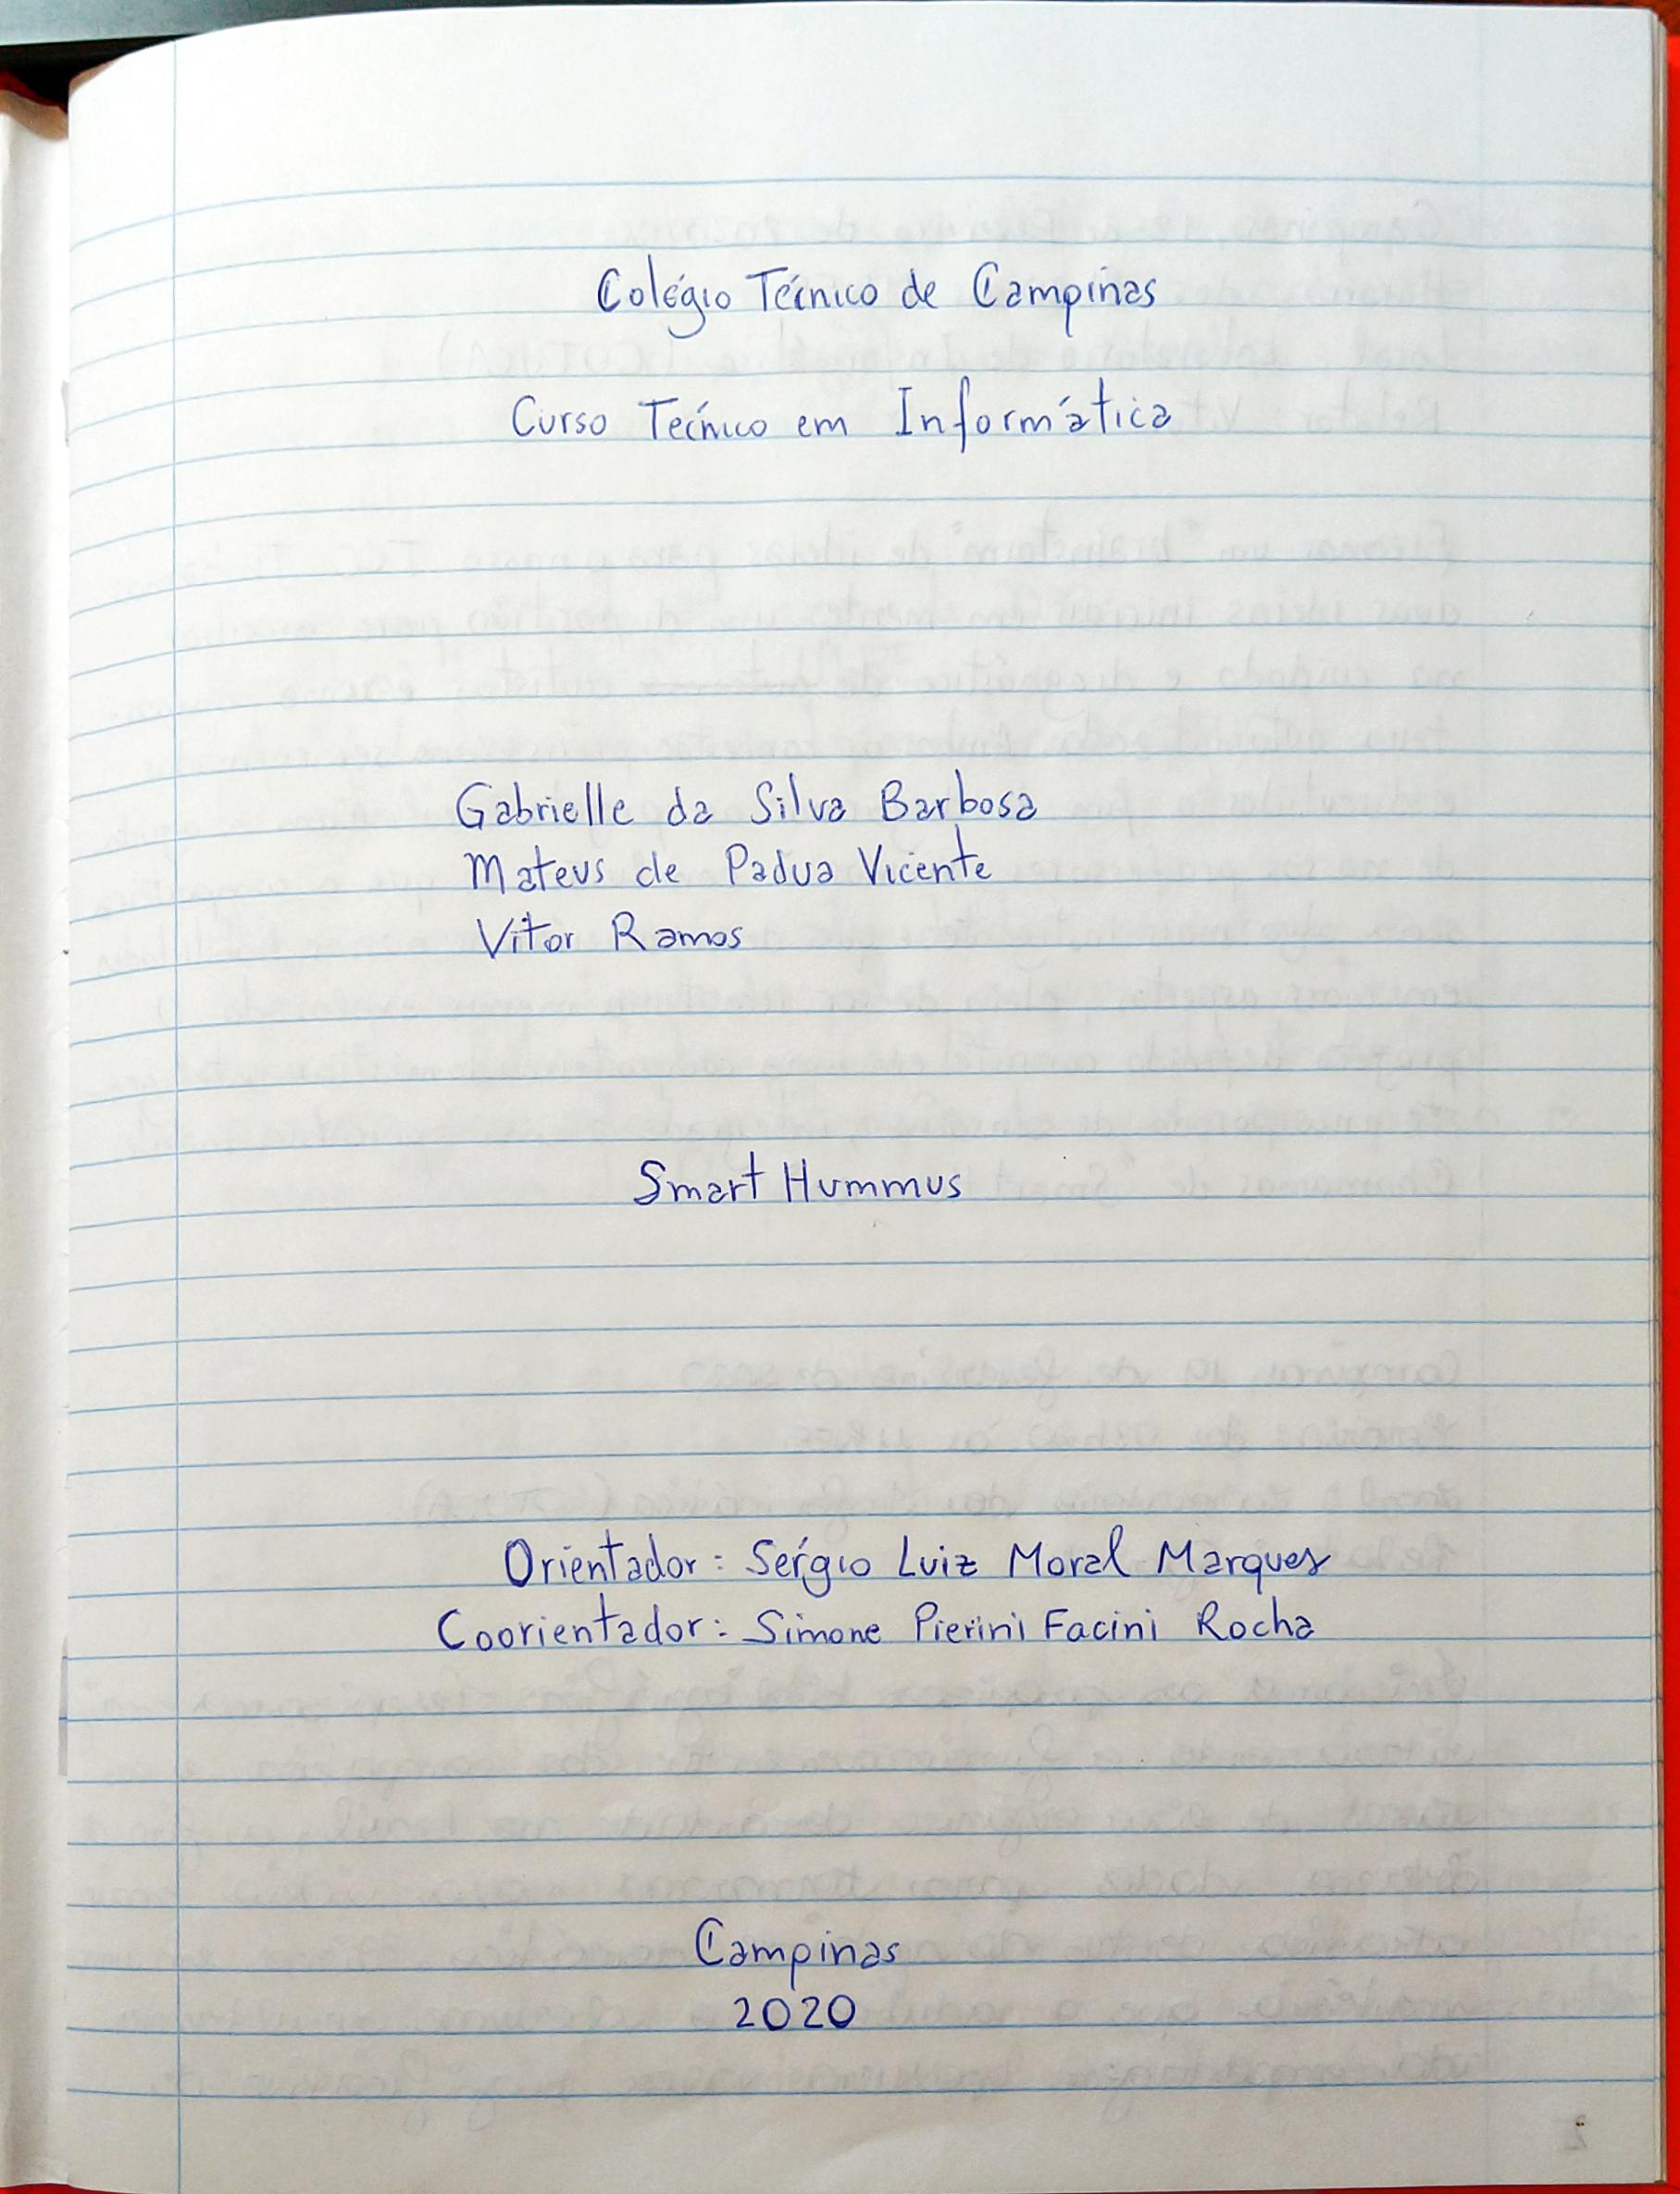 Colégio Técnico de Campinas
Curso Técnico em Informática
Gabrielle da Silva Barbosa
Mateus de Padua Vicente
Vitor Ramos
Smart Hummus
Orientador: Sérgio Luiz Moral Marques
Coorientador: Simone Pierini Facini Rocha
Campinas
2020